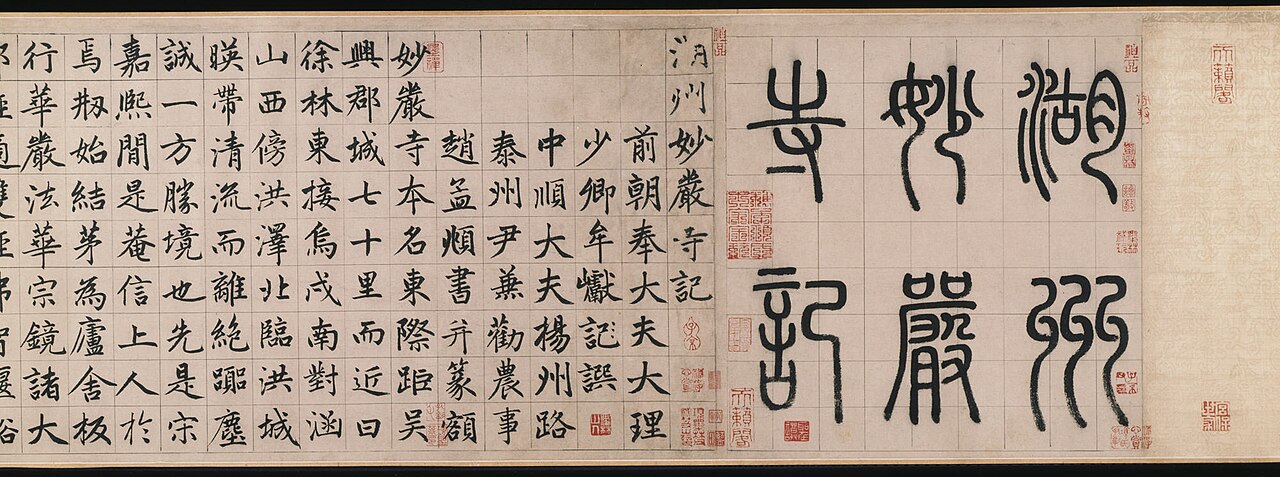 湖州
妙嚴
寺記
湖州妙嚴寺記
前朝奉大夫大理
少卿牟巘記譔
中順大夫揚州路
泰州尹兼勸農事
趙孟頫書并篆額
妙嚴寺本名東際距吳
興郡城七十里而近曰
徐林東接烏戍南對涵
山西傍洪澤北臨洪城
暎帶清流而離絕躢塵
誠一方勝境也先是宋
嘉熙間是菴信上人於
焉剏始結茅為廬舍板
行華嚴法華宗鏡諸大